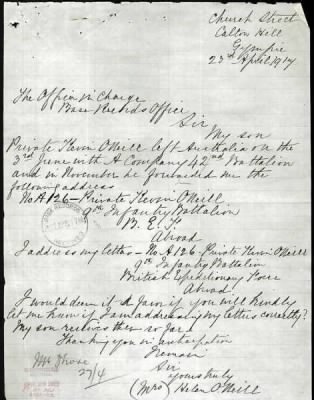 Church Street
Calton Hill
Gympie
23rd April 1917
The Officer in Charge
Base Records Office
Sir
My son
Private Kevin O'Neill left Australia on the
3rd June with A Company 42nd Battalion
and in November he forwarded me the
following address
No A126 - Private Kevin O'Neill
9th Infantry Battalion
B. E. F.
Abroad
I address my letters - No A126. Private Kevin O'Neill
9th Infantry Battalion
British Expeditionary Force
Abroad.
I would deem it a favor if you will kindly
let me know if I am addressing my letters correctly?
My son receives them so far.
Thanking you in anticipation
I remain
Sir
yours truly
(Mrs) Helen O'Neill
27/4